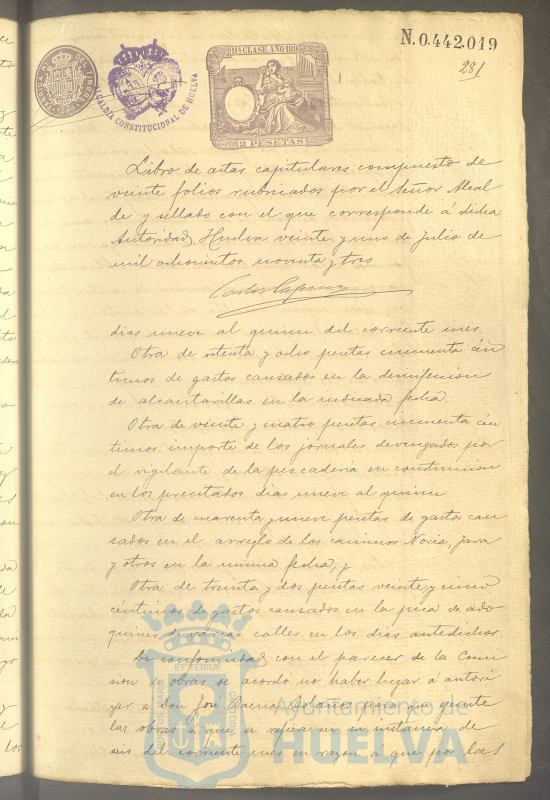 N.0.442.019
281
11ª CLASE. AÑO 1893
2 PESETAS
ALCALDÍA CONSTITUCIONAL DE HUELVA
Libro de actas capitulares compuesto de
veinte folios rubricados por el Señor Alcal
de y sellado con el que corresponde á dicha
Autoridad. Huelva veinte y uno de Julio de
mil ochocientos noventa y tres
dias nueve al quince del corriente mes.
Otra de setenta y ocho pesetas cincuenta cén
timos de gastos causados en la desinfeccion
de alcantarillas en la indicada fecha.
Otra de veinte y cuatro pesetas cincuenta cén
timos importe de los jornales devengados por
el vigilante de la pescadería en construccion
en los precitados dias nueve al quince
Otra de cuarenta y nueve pesetas de gastos cau
sados en el arreglo de los caminos Noria, Jara
y otros en la misma fecha, y
Otra de treinta y dos pesetas veinte y cinco
céntimos de gastos causados en la pica de ado
quines de varias calles en los dias antedichos.
De conformidad con el parecer de la Comi
sion de obras se acordó no haber lugar á autori
zar a Don José Baena Bolaños para que ejecute
las obras á que se refiere en instancia de
seis del corriente mes en razon á que por las
Ayuntamiento de
HUELVA